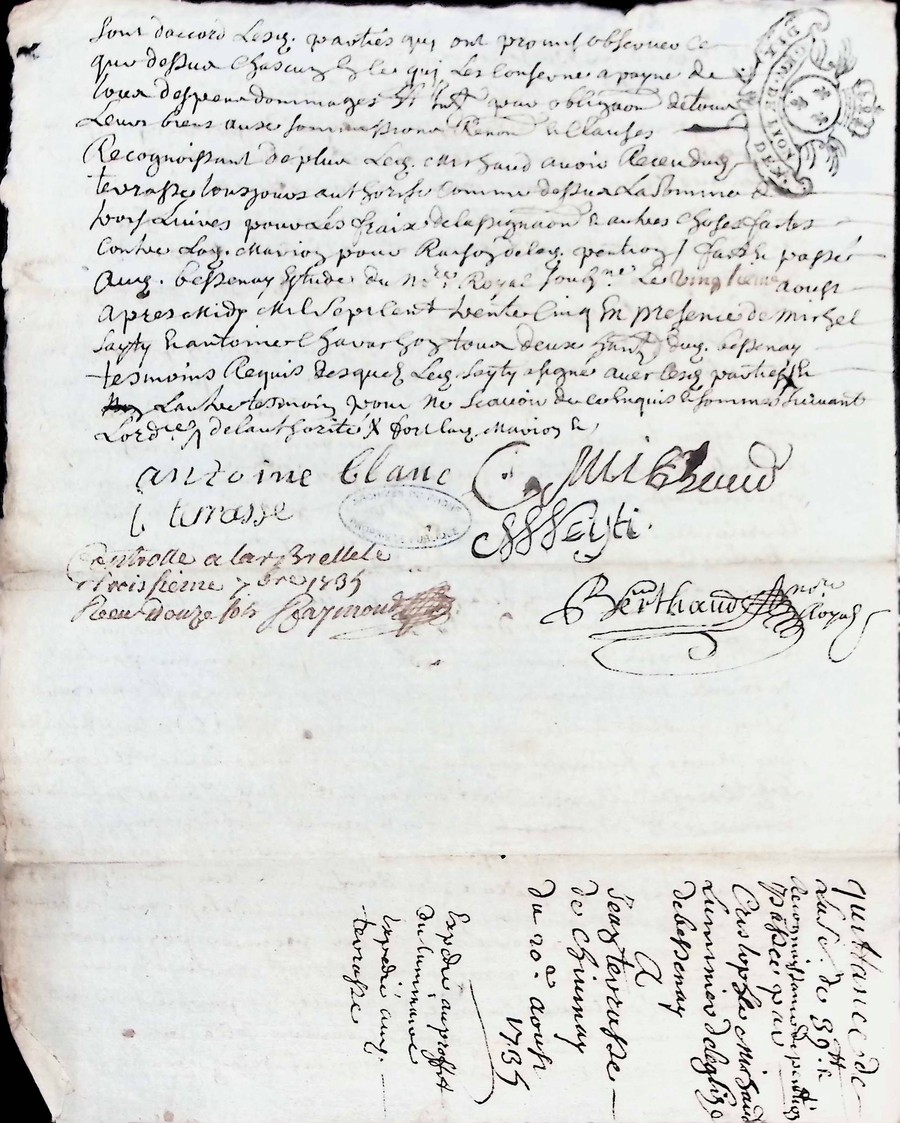 sont daccord Lesq. parties qui ont promis observer Ce
que dessus Chascun En Ce qui Les Conserne a payne de
tous despens dommages Et par obligaon de tous
Leurs biens aux soumissions Renon & Clauses
Recognoissant de plus Leq. Michaud avoir Receu duq.
terrasse tousjours authorise Comme dessus La somme de
trois Livres pour Les fraix de lassignaon & autres Choses faites
Contre Laq. Marion pour Raison de laq. pention / fait & passé
Auq. bessenay Estude du nore Royal souz.né Le vingtieme aoust
apres Midy Mil sept Cent trente Cinq En presence de Michel
Seyty & antoine Chavachon tous deux duq. bessenay
tesmoins Requis desquels Leq. Seyty a signé avec Lesq. parties Et
Lautre tesmoin pour ne scavoir de ce Enquis & sommés suivant
Lord.ce de lauthorité fors laq. Marion &
antoine blanc C. Michaud
j. terrasse
Seyti.
Controllé a larBrelle le
troissieme 7bre 1735
Receu douze sols Raymond
Berthaud nore
Royal
DIX DEN
GEN. DE LYON
quittance de
La so. de 39tt &
Recognoissance de pention
passée par
Cristophle Michaud
Luminier de leglize
de bessenay
A
Jean terrasse
de Chiunay
du 20e aoust
1735
Expédié au proffit
du luminaire
Expedié auq.
terrasse